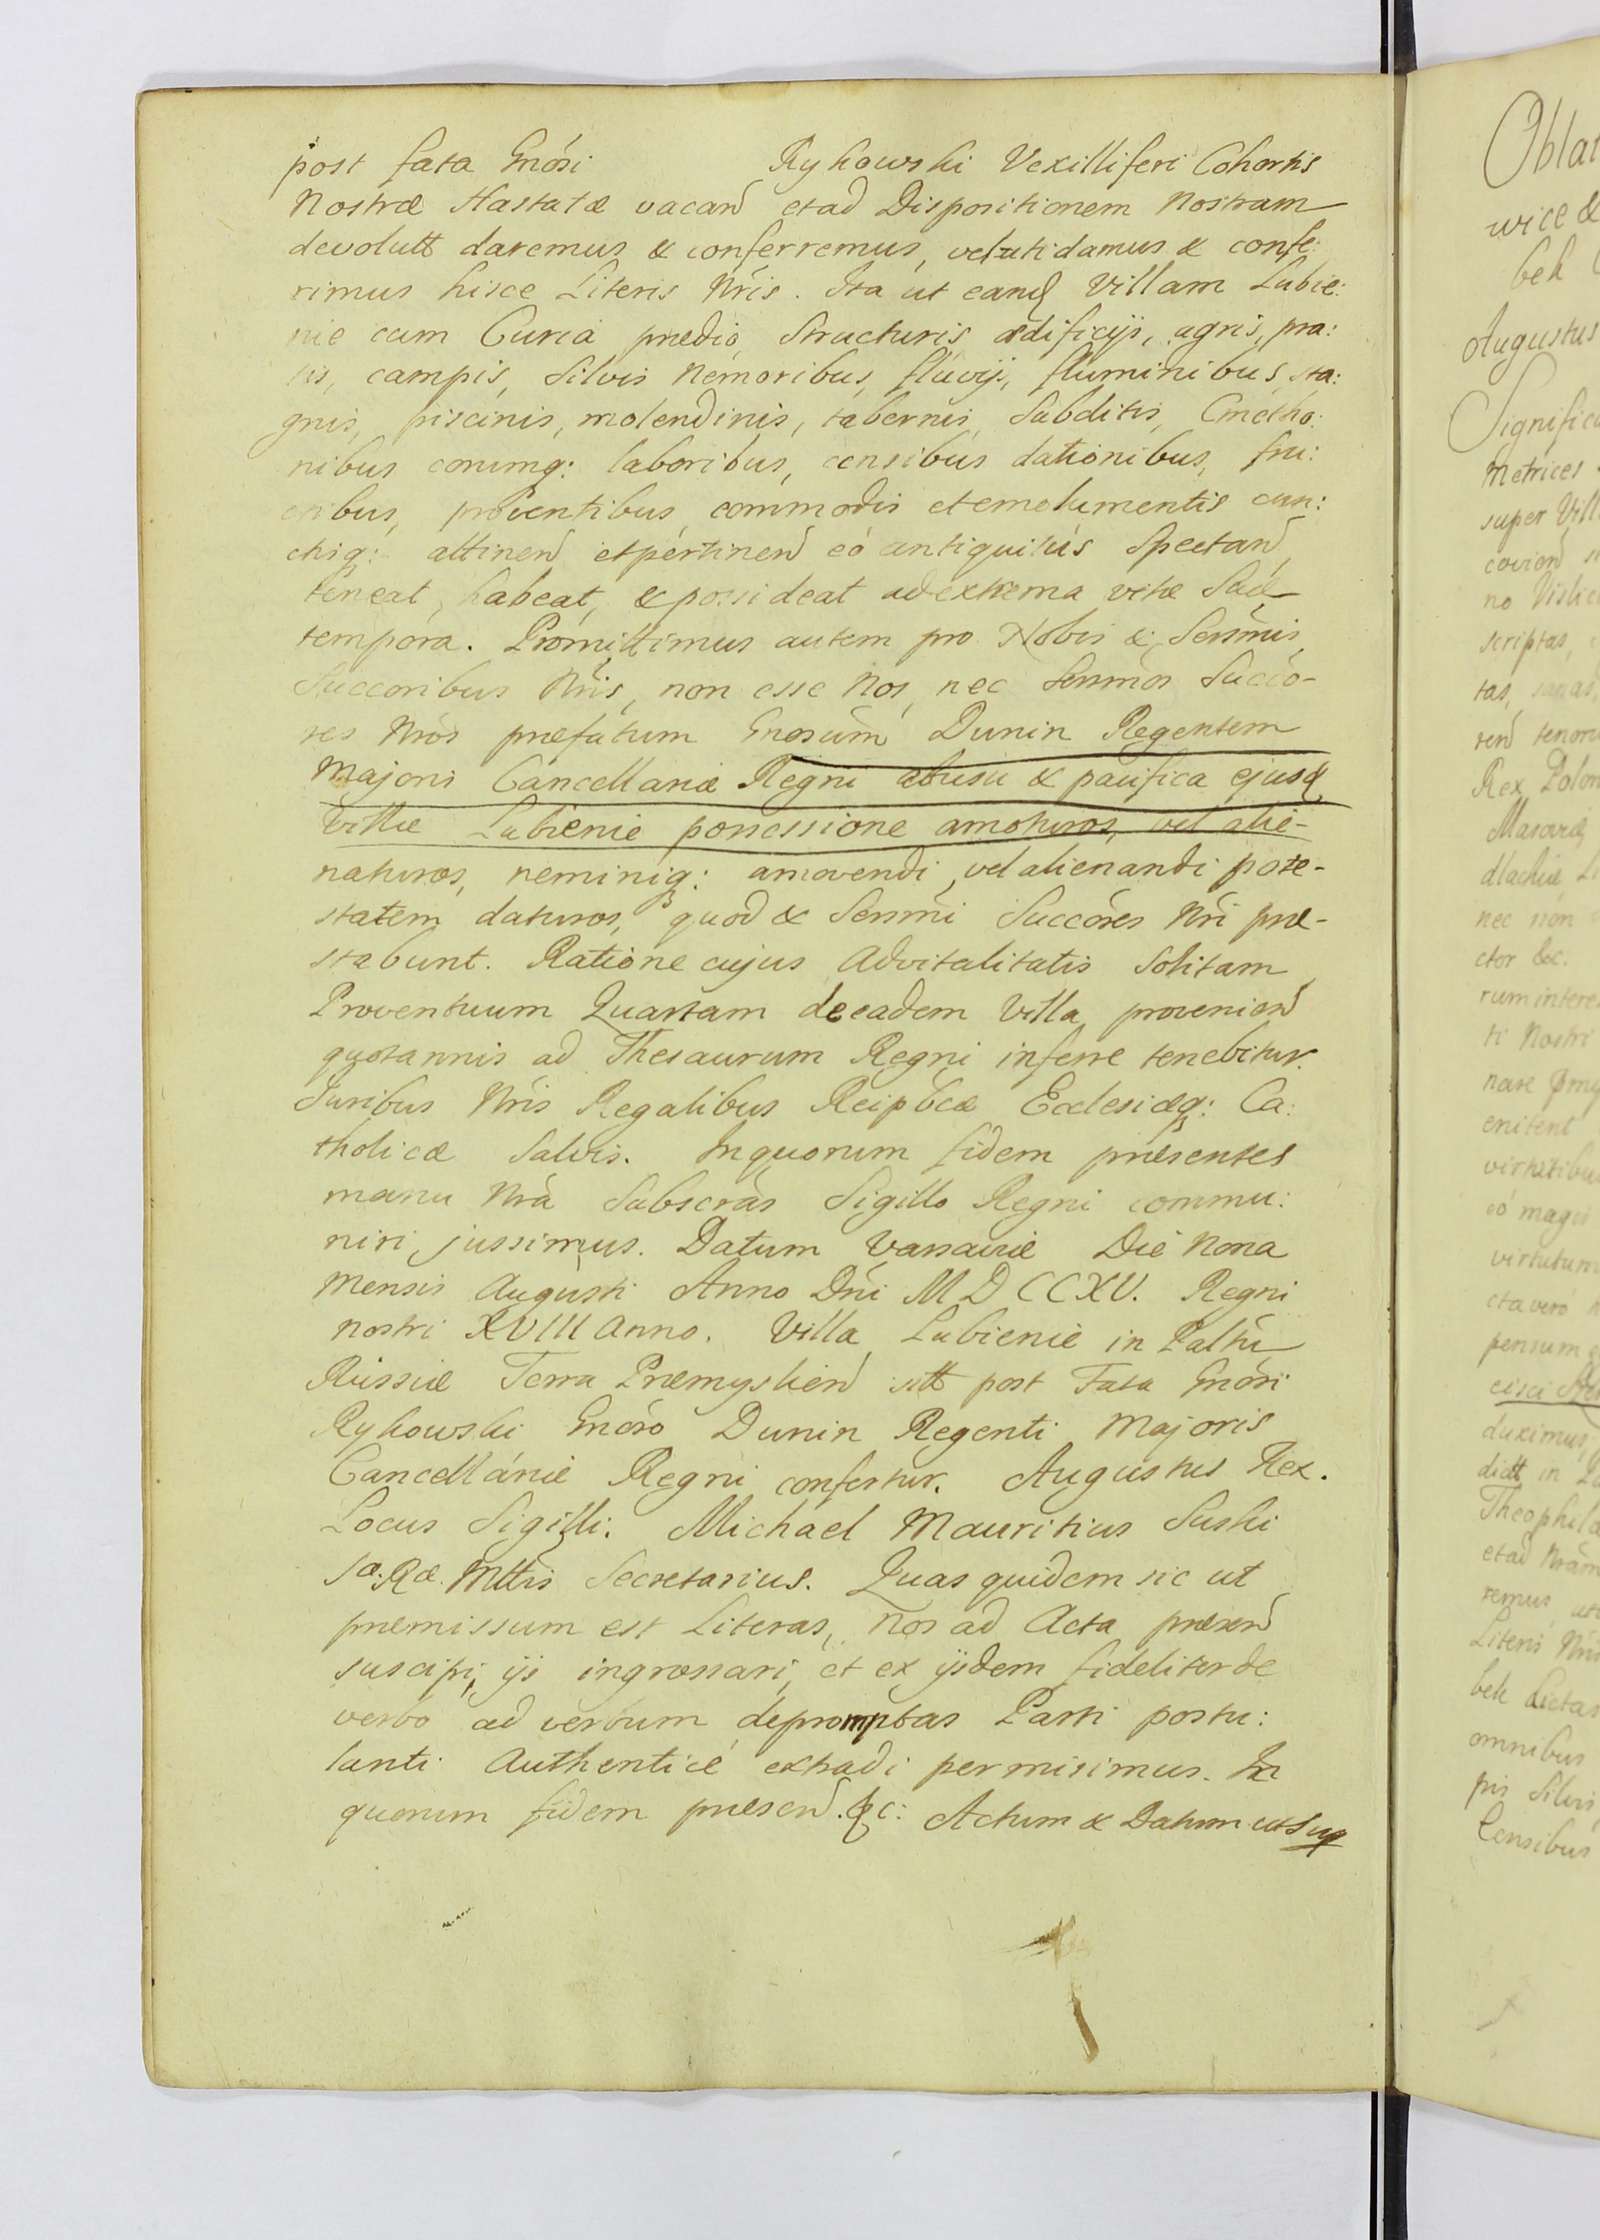 post fata Gnósi Rykowski Vexilliferi Cohortis
Nostræ Hastatæ vacand et ad Dispositionem Nostram
devolutt daremus & conferremus, veluti damus & confe:
rimus hisce Literis Nris. Ita ut eand Villam Lubie:
nie cum Curia prædio, Structuris ædificijs, agris, pra:
tis, campis, Silvis Nemoribus, fluvijs, fluminibus sta:
gnis, piscinis, molendinis, tabernis, Subditis, Cmetho:
nibus eorumq: laboribus, censibus dationibus, fru:
ctibus, proventibus commodis et emolumentis cun:
ctisq: attinend et pertinend eó antiquitùs Spectand
teneat, habeat, & possideat ad extrema vitæ Suæ
tempora. Promittimus autem pro Nobis & Serṁis
Succoribus Nris, non esse Nos, nec Serṁos Succo-
res Nros præfatum Gnosum Dunin Regentem
Majoris Cancellariæ Regni ab usu & pacifica ejusd
Villæ Lubienie possessione amoturos, vel alie-
naturos, neminiq: amovendi, vel alienandi pote-
statem daturos, quod & Serṁi Succóres Nri præ-
stabunt. Ratione cujus Advitalitatis Solitam
Proventuum Quartam de eadem Villa proveniend
quotannis ad Thesaurum Regni inferre tenebitur.
Juribus Nris Regalibus Reipbcæ Ecclesiæq: Ca:
tholicæ Salvis. In quorum fidem præsentes
manu Nrà Subscràs Sigillo Regni commu:
niri jussimus. Datum Varsaviæ Die Nona
Mensis Augusti Anno Dni MDCCXV. Regni
nostri XVIII Anno. Villa Lubienie in Palttu
Russiæ Terra Præmyslien sitt post Fata Gnósi
Rykowski Gnóso Dunin Regenti Majoris
Cancelláriæ Regni confertur. Augustus Rex.
Locus Sigilli. Michael Mauritius Suski
Sæ. Ræ. Mttis Secretarius. Quas quidem sic ut
præmissum est Literas, Nos ad Acta præsend
suscipi, ijs ingrossari, et ex ijsdem fideliter de
verbo ad verbum depromptas Parti postu:
lanti Authenticè extradi permisimus. In
quorum fidem præsend. &c: Actum & Datum ut Sup

Oblat
wice &
bek
Augustus
Significa
Metrices
super Vill
no Vislic
scriptas,
tas, sanas
tend tenoris
Rex Polon
Masoviæ
dlachiæ Li
nec non
ctor &c.
rum intere
ti Nostri
enitent
virtutibus
eò magis
virtutum
cta verò
pensum
duximus
ditt in
Theophila
et ad Nram
remus
Literis Nris
bek dictas
omnibus
pis Silvis
Censibus